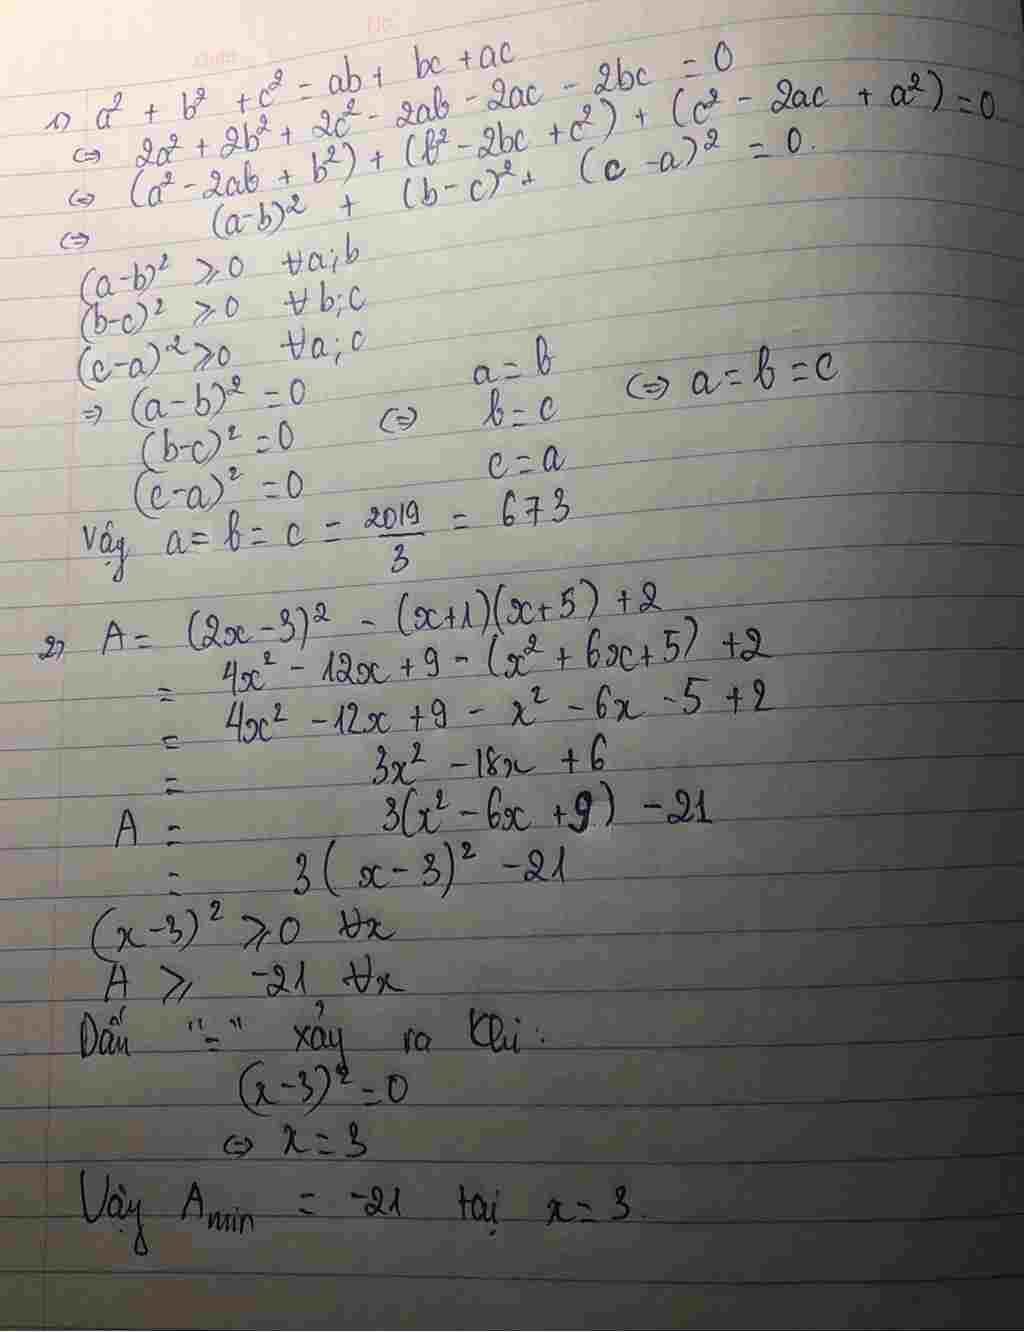 1) a² + b² + c² = ab + bc + ac
⇔ 2a² + 2b² + 2c² - 2ab - 2ac - 2bc = 0
⇔ (a² - 2ab + b²) + (b² - 2bc + c²) + (c² - 2ac + a²) = 0
⇔ (a-b)² + (b-c)² + (c-a)² = 0.
(a-b)² ⩾ 0 ∀a;b
(b-c)² ⩾ 0 ∀b;c
(c-a)² ⩾ 0 ∀a;c
⇒ (a-b)² = 0 a = b
(b-c)² = 0 ⇔ b = c ⇔ a = b = c
(c-a)² = 0 c = a
Vậy a = b = c = 2019/3 = 673
2) A = (2x-3)² - (x+1)(x+5) + 2
= 4x² - 12x + 9 - (x² + 6x + 5) + 2
= 4x² - 12x + 9 - x² - 6x - 5 + 2
= 3x² - 18x + 6
A = 3(x² - 6x + 9) - 21
= 3(x-3)² - 21
(x-3)² ⩾ 0 ∀x
A ⩾ -21 ∀x
Dấu "=" xảy ra khi:
(x-3)² = 0
⇔ x = 3
Vậy Amin = -21 tại x = 3.